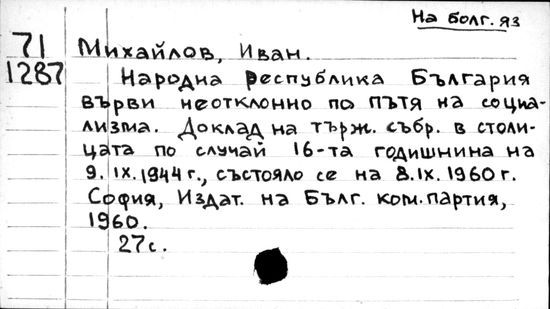 На болг. яз
71
1287
Михайлов, Иван.
Народна република България
върви неотклонно по пътя на социа-
лизма. Доклад на търж. събр. в столи-
цата по случай 16-та годишнина на
9. IX. 1944 г., състояло се на 8. IX. 1960 г.
София, Издат. на Бълг. ком. партия,
1960.
27 с.